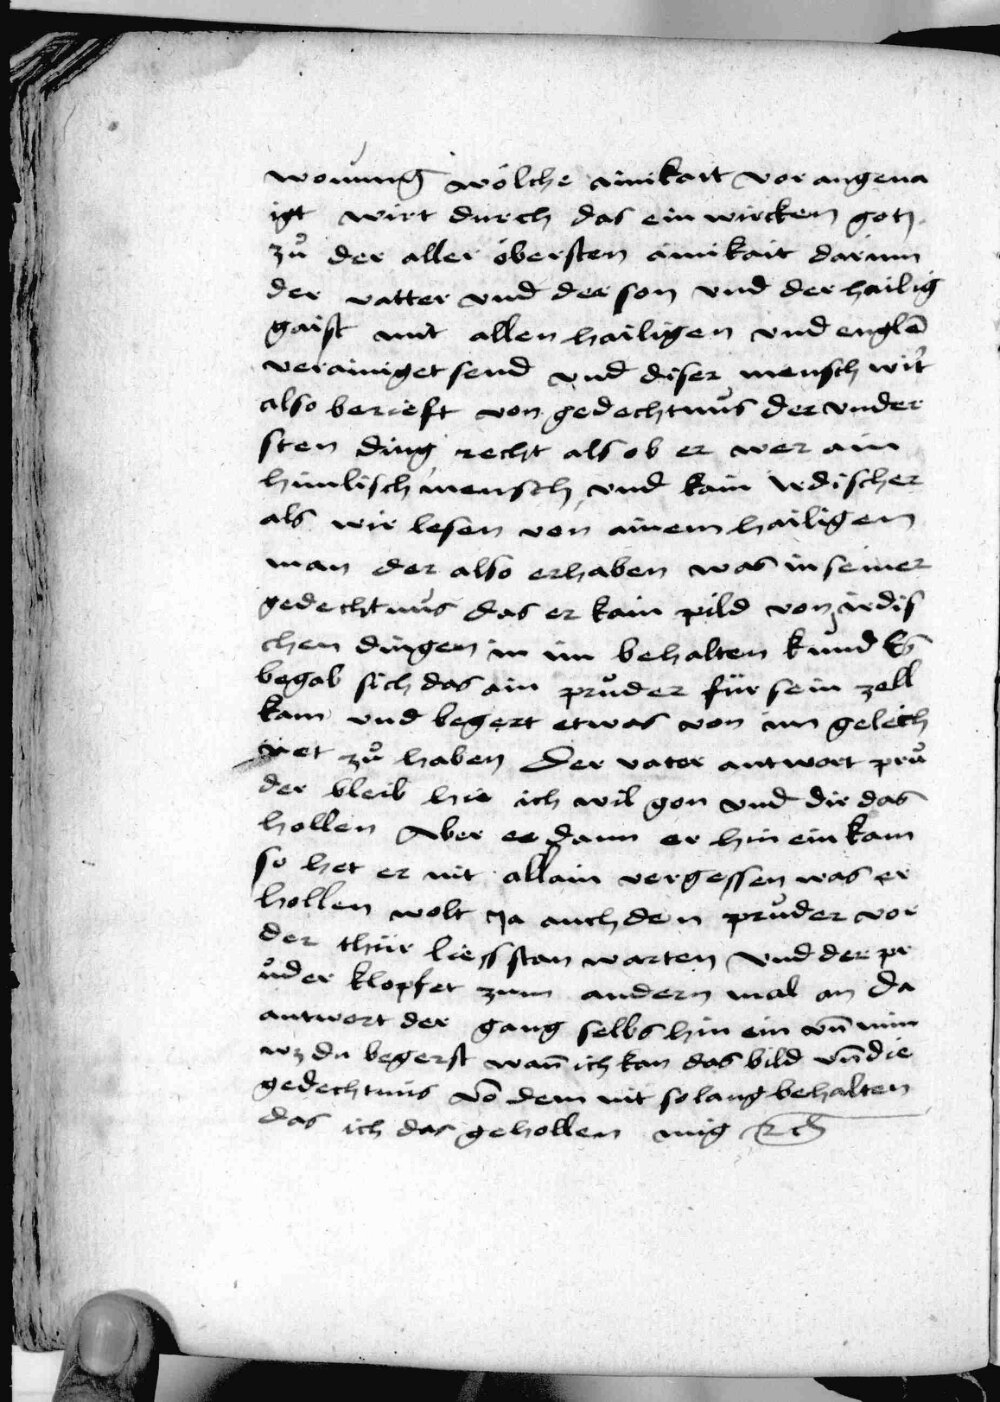 wonung wölche ainikait vor angena
igt wirt durch das ein wircken gotz
zů der aller öbersten ainikait darinn
der vatter vnd der son vnd der hailig
gaist mit allen hailigen vnd englē
verainiget send vnd diser mensch wirt
also berieft von gedechtnus der vnder
sten ding recht als ob er wer ain
himlisch mensch vnd kain irdischer
als wir lesen von ainem hailigen
man der also erhaben was in seiner
gedechtnus das er kain pild von irdis
chen dingen in im behalten kund Es
begab sich das ain průder für sein zell
kam vnd begert etwas von im gelech
net zů haben Der vater antwort prů
der bleib hie ich wil gon vnd dir das
hollen Aber ee dann er hin ein kam
so het er nit allain vergessen was er
hollen wolt Ja auch den průder vor
der thür liess stan warten vnd der pr
ůder klopfet zum andern mal an da
antwort der gang selbs hin ein vn̄ nim
wz du begerst wan̄ ich kan das bild vn̄ die
gedechtnus vō dem nit so lang behalten
das ich das gehollen mig